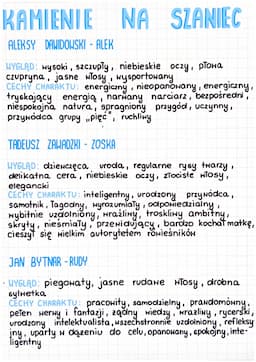 KAMIENIE NA SZANIEC
ALEKSY DAWIDOWSKI - ALEK
WYGLĄD: wysoki, szczupły, niebieskie oczy, płowa
czupryna, jasne włosy, wysportowany
CECHY CHARAKTU: energiczny, nieopanowany, energiczny,
tryskający energią, narwany narciarz, bezpośredni,
niespokojna natura, spragniony przygód, uczynny,
przywódca grupy „pięć", ruchliwy
TADEUSZ ZAWADZKI - ZOSKA
WYGLĄD: dziewczęca uroda, regularne rysy twarzy,
delikatna cera, niebieskie oczy, złociste włosy,
elegancki
CECHY CHARAKTU: inteligentny, urodzony przywódca,
samotnik, łagodny, wyrozumiały, odpowiedzialny,
wybitnie uzdolniony, wrażliwy, troskliwy ambitny,
skryty, nieśmiały, przewidujący, bardzo kochał matkę,
cieszył się wielkim autorytetem rówieśników
JAN BYTNAR - RUDY
WYGLĄD: piegowaty, jasne rudawe włosy, drobna
sylwetka
CECHY CHARAKTU: pracowity, samodzielny, prawdomówny,
pełen werwy i fantazji, żądny wiedzy, wrażliwy, rycerski,
urodzony intelektualista, wszechstronnie uzdolniony, refleksy
jny, uparty w dążeniu do celu, opanowany, spokojny, inte-
ligentny